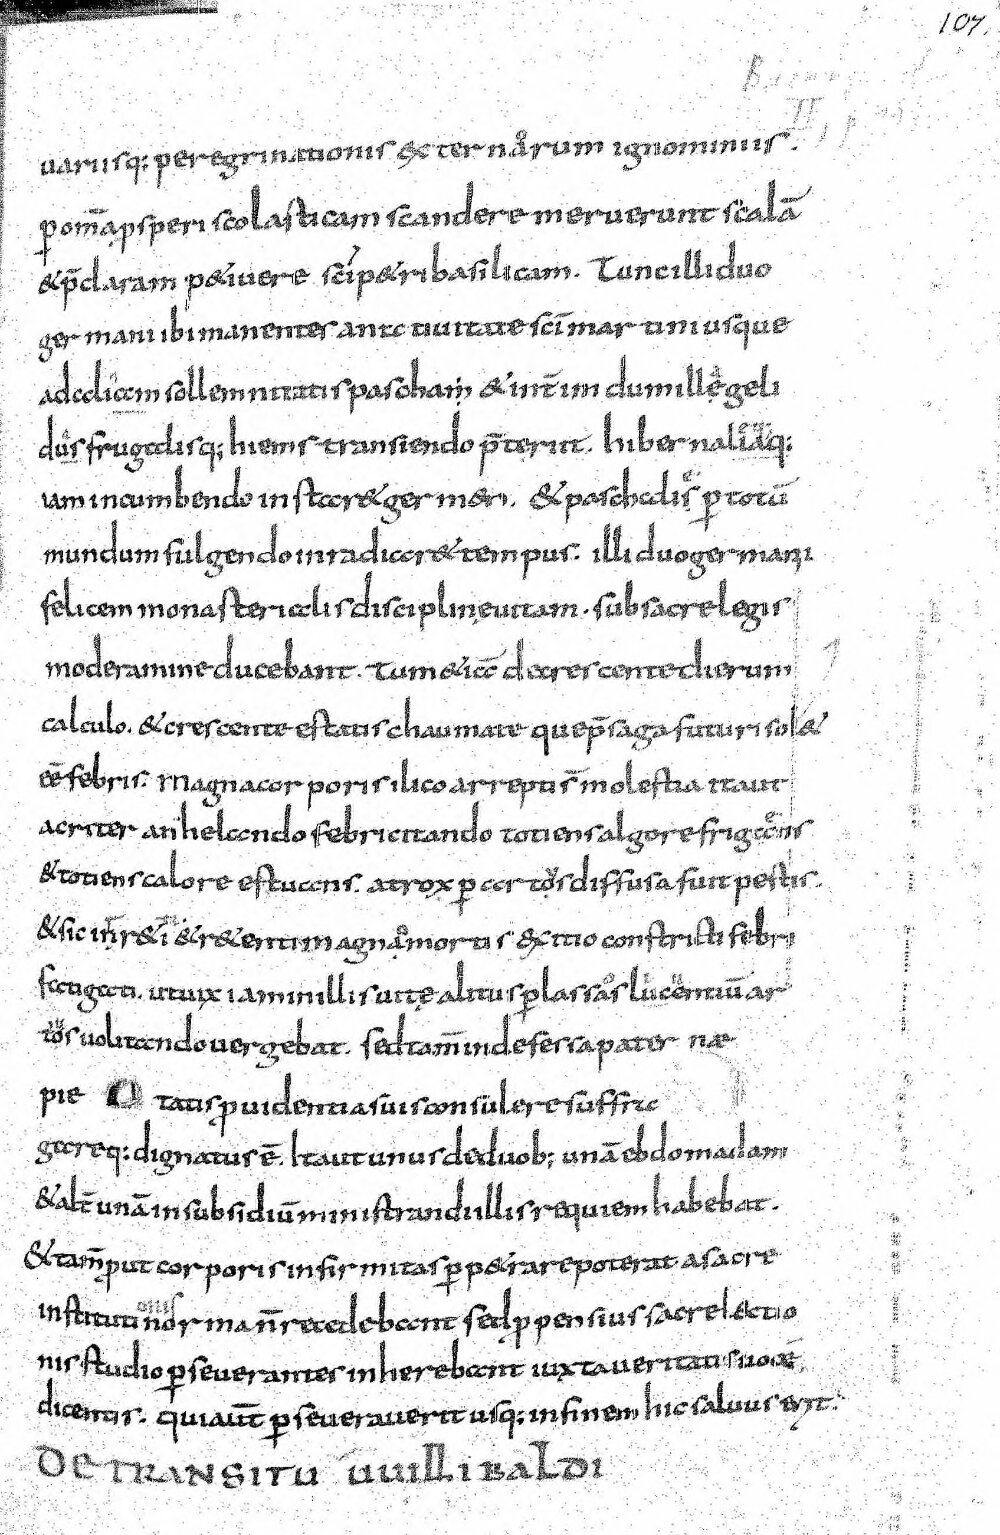 107.
uariisq; peregrinationis & externarum ignominiis.
p omā psperi scolasticam scandere meruerunt scalā
& p̄claram p&iuere sc̄i p&ri basilicam. Tunc illi duo
germani ibi manentes a natiuitate sc̄i martini usque
ad aliam sollemnitatis pascham & int̄im dum ille geli
dus frugalisq; hiemis transiendo p̄teriit. hibernaliaq;
iam incumbendo instar& germen. & paschalis p totū
mundum fulgendo inradiar& tempus. illi duo germani
felicem monasterialis discipline uitam. sub sacre legis
moderamine ducebant. Tum & iā decrescente dierum
calculo. & crescente estatis chaumate que p̄saga futuri sol&
eē febris. Magna corporis ilico arreptis̄ molestia ita ut
acriter anhelando febricitando totiens algore frigens
& totiens calore estuans. atrox p artus diffusa fuit pestis.
& sic &r&enti magna mortis &itio constricti febri
fatigati. ut uix iam in illis uitę alitus p lassas lucentiū ar
tos uolitando uergebat. sed tam̄ indefessa pater næ
pie tatis puidentia suis consulere suffra
gareq; dignatus ē. Ita ut unus de duob; unā ebdomadam
& alt̄ unā in subsidiū ministrandi illis requiem habebat.
& tam̄ put corporis infirmitas p p&rare poterat a sacre
instituti norma n̄ recedebant sed ppensius sacre lectio
nis studio pseuerantes inherebant iuxta ueritatis uocē
dicentis. qui aut̄ pseuerauerit usq; in finem hic saluus erit.
DE TRANSITU UUILLIBALDI